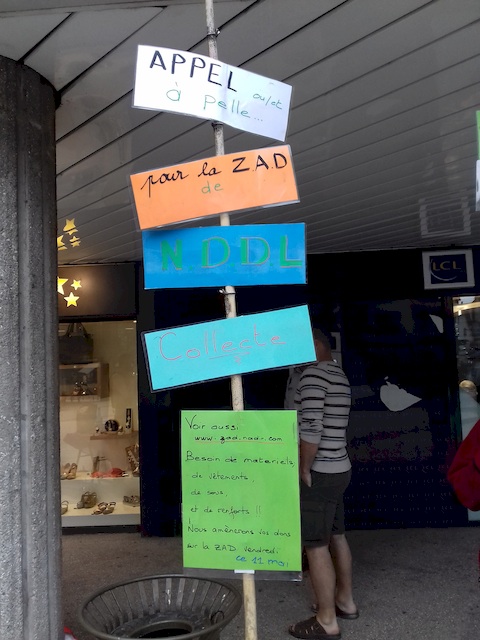 APPEL
ou/et
à pelle...
pour la Z.A.D
de
N DDL
Collecte
LCL
Voir aussi
www.zad.nadir.com
Besoin de materiels,
de vêtements,
de sous,
et de renforts !!
Nous amènerons vos dons
sur la ZAD Vendredi
ce 11 mai